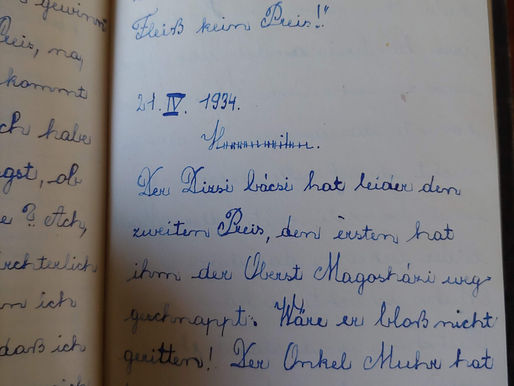 gewinn
Preis, na,
kommt
ch habe
ngst, ob
e? Ach,
rchterlich
n ich
daß ich
Fleiß kein Preis!"
21. IV. 1934.
Der Dizsi bácsi hat leider den
zweiten Preis, den ersten hat
ihm der Oberst Magosházi weg-
geschnappt. Wäre er bloß nicht
geritten! Der Onkel Muhr hat